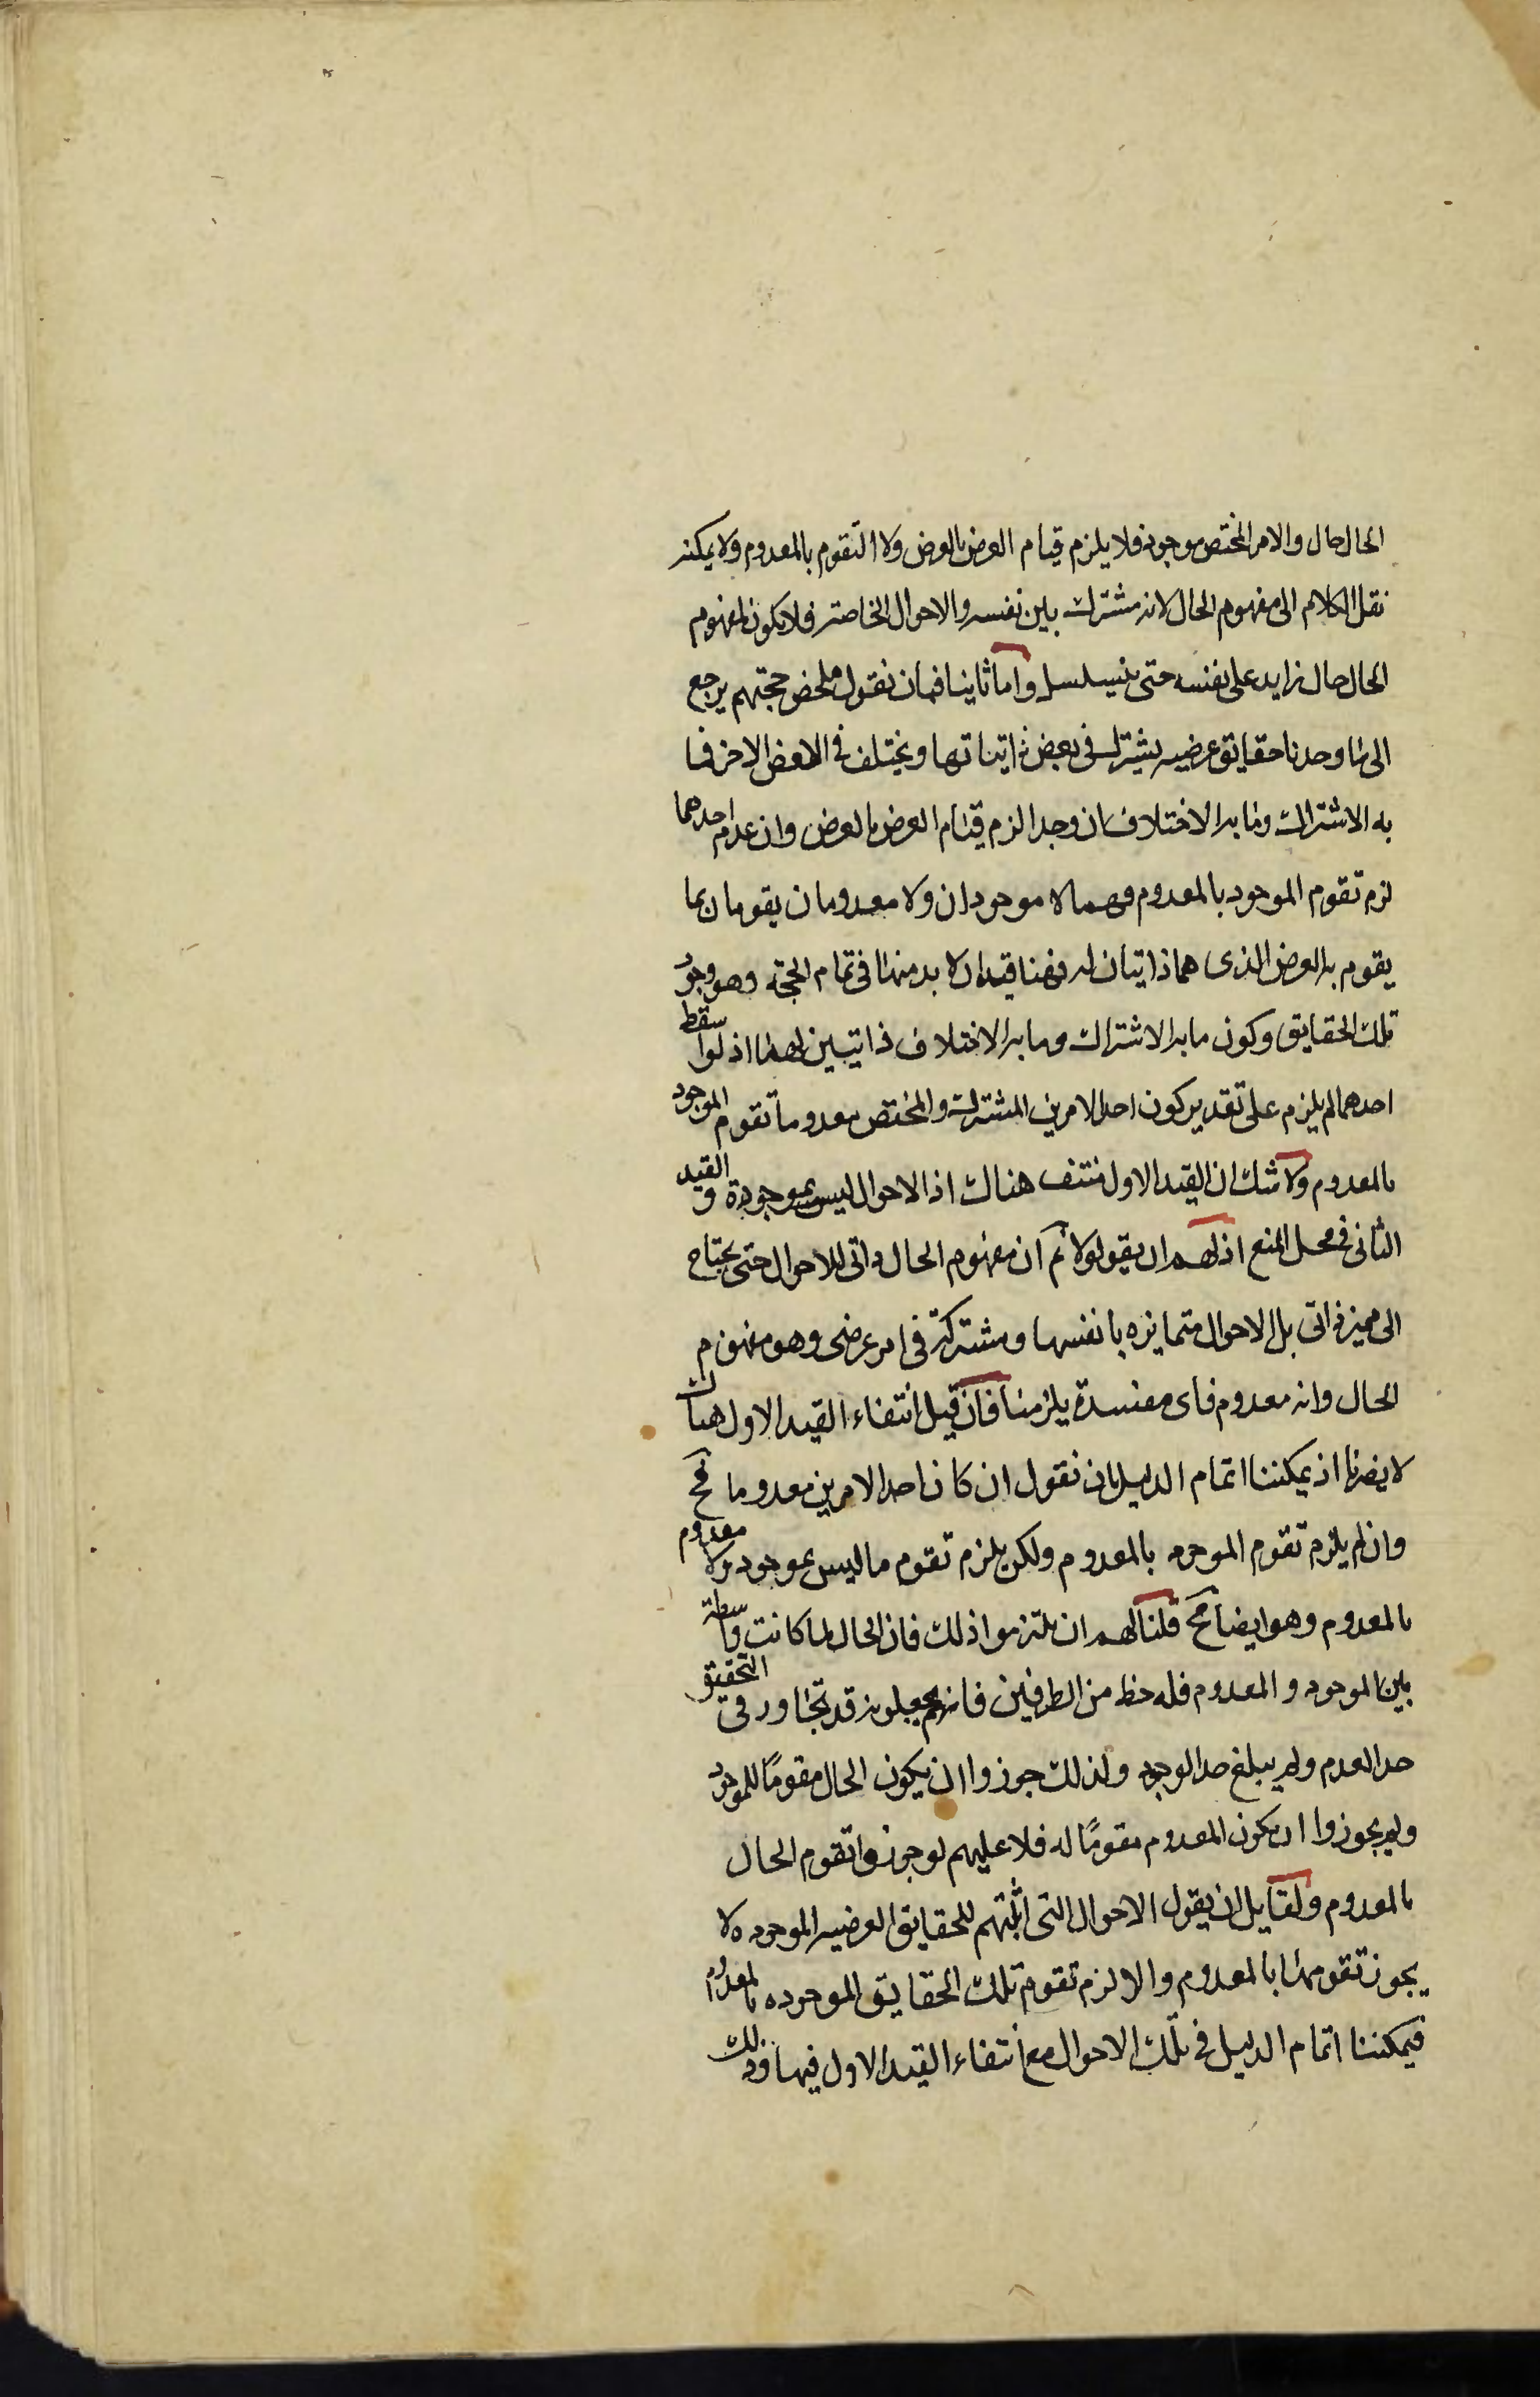 الحال حال والامر المختص موجود فلا يلزم قيام العرض بالعرض ولا التقوم بالمعدوم ولا يمكنه
نقل الكلام الى مفهوم الحال لانه مشترك بين نفسه والاحوال الخاصة فلا يكون لمفهوم
الحال حال زايد على نفسه حتى يتسلسل واما ثانيا فبان نقول ملخص حجتهم يرجع
الى انا وجدنا حقايق عرضيه يشترك في بعض ذاتياتها ويختلف في البعض الاخر فما
به الاشتراك وما به الاختلاف ان وجدا لزم قيام العرض بالعرض وان عدم احدهما
لزم تقوم الموجود بالمعدوم فهما لا موجودان ولا معدومان يقومان بما
يقوم به العرض الذى هما ذاتيان له فهنا قيدان لا بد منهما في تمام الحجة وهو وجود
تلك الحقايق وكون ما به الاشتراك وما به الاختلاف ذاتيين لها اذ لو سقط
احدهما لم يلزم على تقدير كون احد الامرين المشترك والمختص معدوما تقوم الموجود
بالمعدوم ولا شك ان القيد الاول منتف هناك اذ الاحوال ليس بموجودة والقيد
الثانى في محل المنع اذ لهم ان يقولوا لا نم ان مفهوم الحال ذاتى للاحوال حتى يحتاج
الى مميز ذاتى بل الاحوال متمايزه بانفسها ومشتركة في امر عرضى وهو مفهوم
الحال وانه معدوم فاى مفسدة يلزمنا فان قيل انتفاء القيد الاول هناك
لا يضرنا اذ يمكننا اتمام الدليل بان نقول ان كان احد الامرين معدوما فح
وان لم يلزم تقوم الموجود بالمعدوم ولكن يلزم تقوم ما ليس بموجود ولا معدوم
بالمعدوم وهو ايضا مح قلنا لهم ان يلتزموا ذلك فان الحال لما كانت واسطة
بين الموجود والمعدوم فله حظ من الطرفين فانهم يجعلونه قد تجاوز في التحقيق
حد العدم ولم يبلغ حد الوجود ولذلك جوزوا ان يكون الحال مقومًا للموجود
ولم يجوزوا ان يكون المعدوم مقومًا له فلا عليهم لو جوزوا تقوم الحال
بالمعدوم ولقايل ان يقول الاحوال التى اثبتهم للحقايق العرضيه الموجوده لا
يجوز تقومها بالمعدوم والا لزم تقوم تلك الحقايق الموجوده بالمعدوم
فيمكننا اتمام الدليل في تلك الاحوال مع انتفاء القيد الاول فيها وذلك